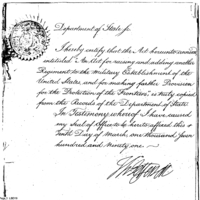 Department of State, fs.
I hereby certify, that the Act hereunto annexed
entitled "An Act for raising and adding another
Regiment to the Military Establishment of the
United States, and for making farther Provision
for the Protection of the Frontiers," is truly copied
from the Records of the Department of State.
In Testimony whereof I have caused
my Seal of Office to be hereto affixed this
tenth Day of March, one thousand seven
hundred and Ninety one.